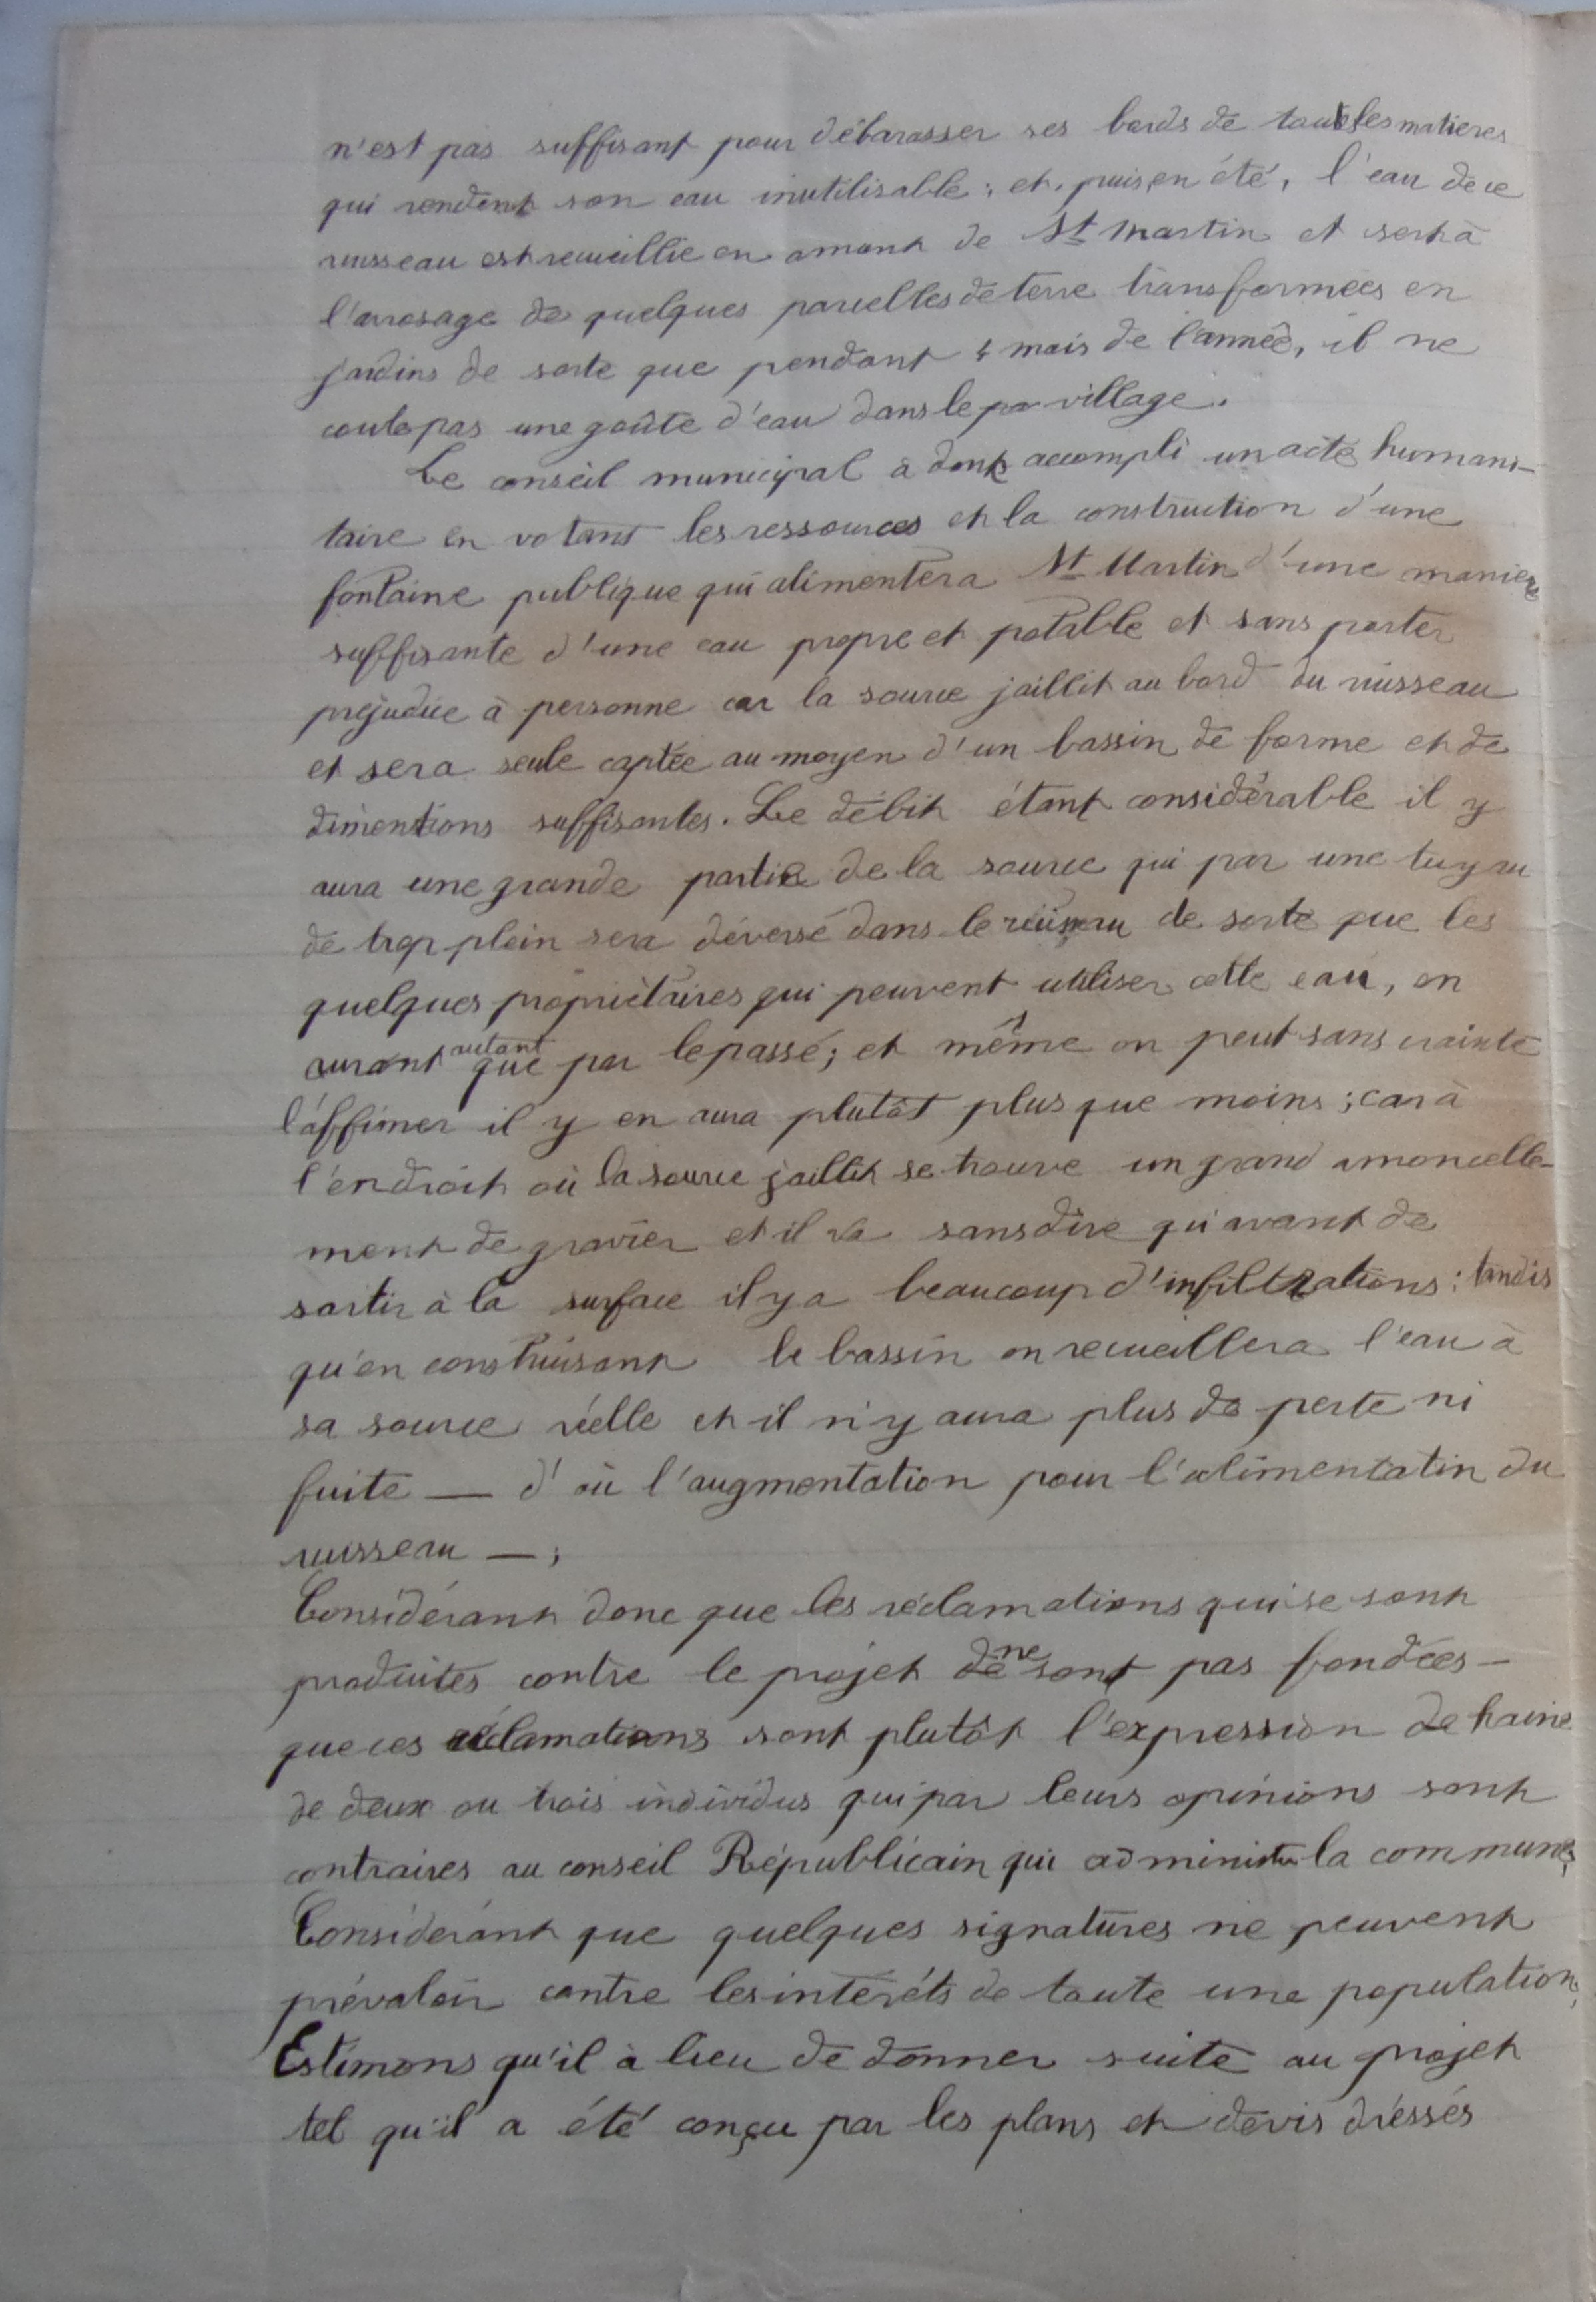 n'est pas suffisant pour débarasser ses bords de toutes les matieres
qui rendent son eau inutilisable ; et, puis, en été, l'eau de ce
ruisseau est recueillie en amont de St Martin et sert à
l'arrosage de quelques parcelles de terre transformées en
jardins de sorte que pendant 4 mois de l'année, il ne
coule pas une goûte d'eau dans le village.
Le conseil municipal a donc accompli un acte humani-
taire en votant les ressources et la construction d'une
fontaine publique qui alimentera St Martin d'une maniere
suffisante d'une eau propre et potable et sans porter
préjudice à personne car la source jaillit au bord du ruisseau
et sera seule captée au moyen d'un bassin de forme et de
dimentions suffisantes. Le débit étant considérable il y
aura une grande partie de la source qui par une tuyau
de trop plein sera déversé dans le ruisseau de sorte que les
quelques propriétaires qui peuvent utiliser cette eau, en
auront autant que par le passé ; et même on peut sans crainte
l'affimer il y en aura plutôt plus que moins ; car à
l'endroit où la source jaillit se trouve un grand amoncelle-
ment de gravier et il va sans dire qu'avant de
sortir à la surface il y a beaucoup d'infiltrations : tandis
qu'en construisant le bassin on recueillera l'eau à
sa source réelle et il n'y aura plus de perte ni
fuite — d'où l'augmentation pour l'alimentatin du
ruisseau — ;
Considérant donc que les réclamations qui se sont
produites contre le projet de ne sont pas fondées -
que ces réclamations sont plutôt l'expression de haine
de deux ou trois individus qui par leurs opinions sont
contraires au conseil Républicain qui administre la commune ;
Considérant que quelques signatures ne peuvent
prévaloir contre les intérêts de toute une population ;
Estimons qu'il à lieu de donner suite au projet
tel qu'il a été conçu par les plans et devis dréssés